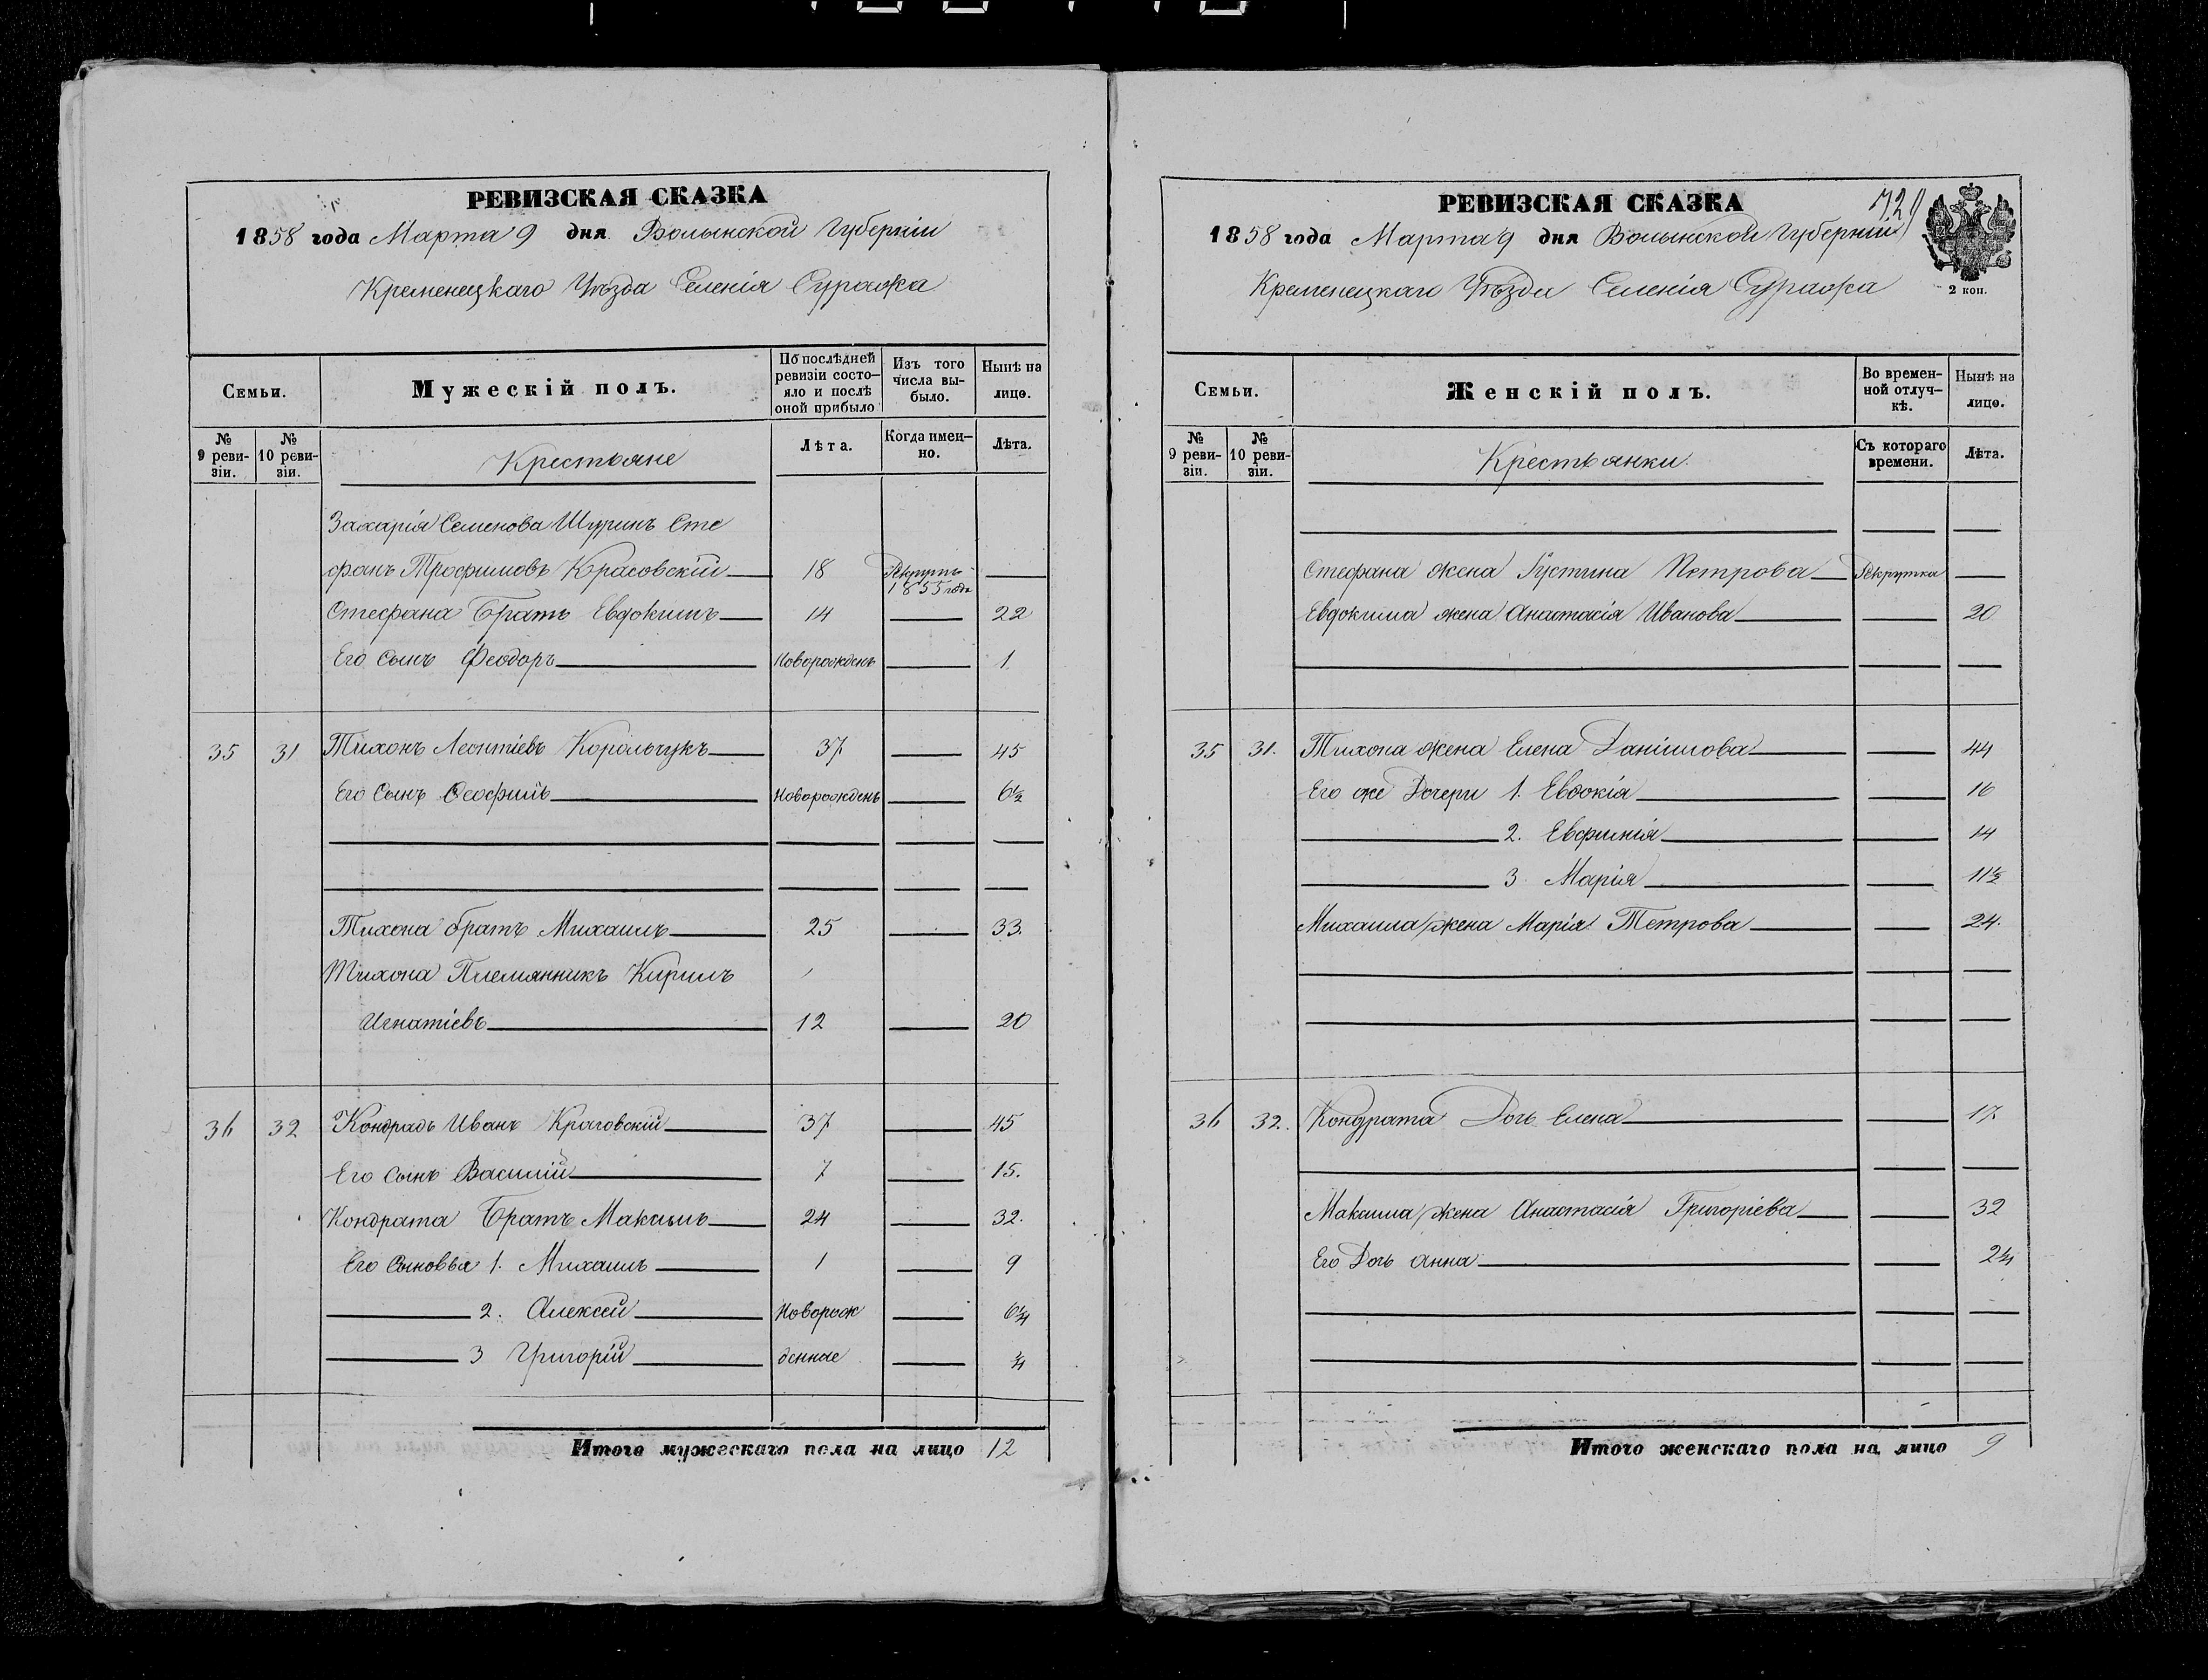 РЕВИЗСКАЯ СКАЗКА
1858 года Марта 9 дня Волынской Губерніи
Кременецкаго Уѣзда Селенія Суража
Семьи.
Мужескій полъ.
По послѣдней ревизіи состояло и послѣ оной прибыло
Изъ того числа выбыло.
Нынѣ на лицо.
№ 9 ревизіи.
№ 10 ревизіи.
Крестьяне
Лѣта.
Когда именно.
Лѣта.
Захарія Семенова Шуринъ Сте
фанъ Трофимовъ Красовскій 18 Рекрутъ 1855 года
Стефана Братъ Евдокимъ 14 22
Его сынъ Феодоръ Новорожденъ 1.
35 31 Тихонъ Леонтіевъ Корольчукъ 37 45
Его Сынъ Феофилъ Новорожденъ 6½
Тихона братъ Михаилъ 25 33.
Тихона Племянникъ Кирилъ
Игнатіевъ 12 20
36 32 Кондрадъ Иванъ Краговскій 37 45
Его сынъ Василій 7 15.
Кондрата Братъ Максимъ 24 32.
Его Сыновья 1. Михаилъ 1 9
2. Алексей Новорож 6¼
3 Григорій денные ¼
Итого мужескаго пола на лицо 12
РЕВИЗСКАЯ СКАЗКА
1858 года Марта 9 дня Волынской Губерніи
Кременецкаго Уѣзда Селенія Суража
2 коп.
Семьи.
Женскій полъ.
Во временной отлучкѣ.
Нынѣ на лицо.
№ 9 ревизіи.
№ 10 ревизіи.
Крестьянки.
Съ котораго времени.
Лѣта.
Стефана жена Іустина Петрова Рекрутка
Евдокима жена Анастасія Иванова 20
35 31. Тихона жена Елена Даніилова 44
Его же Дочери 1. Евдокія 16
2. Евфимія 14
3. Марія 11½
Михаила жена Марія Петрова 24.
36 32. Кондрата Дочь Елена 17
Максима жена Анастасія Григоріева 32
Его Дочь Анна 2¼
Итого женскаго пола на лицо 9